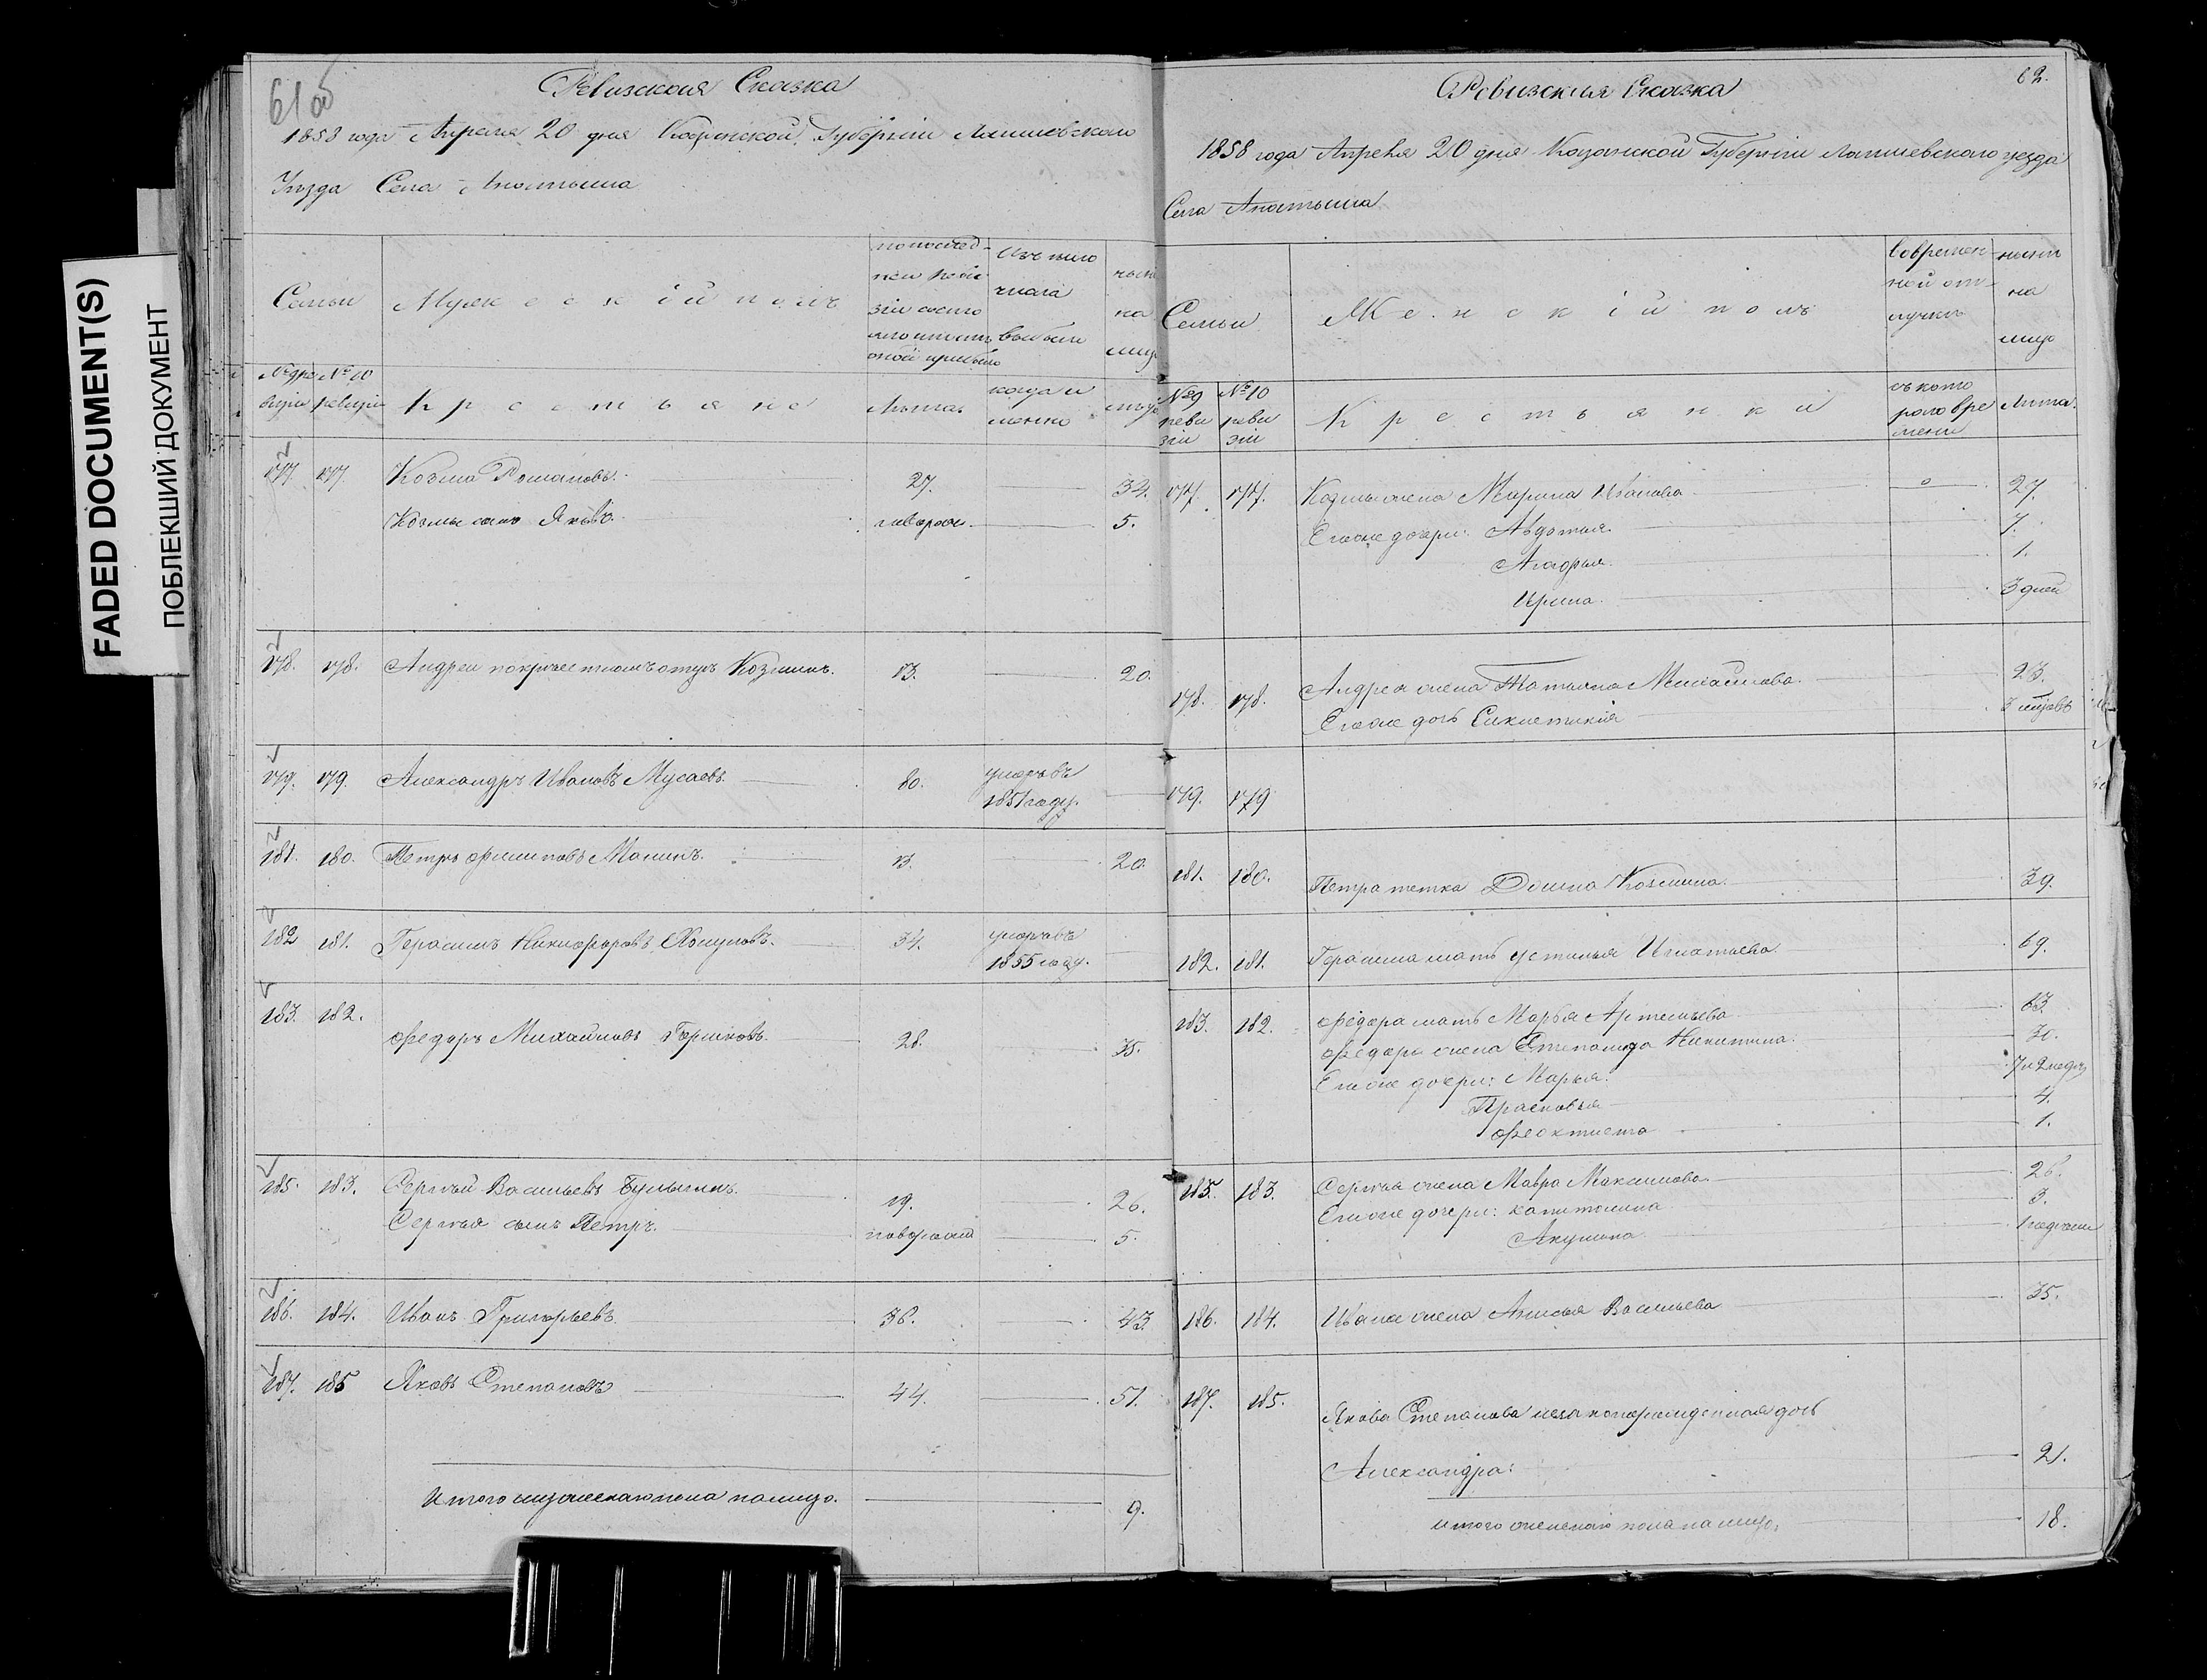 FADED DOCUMENT(S)
ПОБЛЕКШИЙ ДОКУМЕНТ
61об
Ревизская Сказка
1858 года Апреля 20 дня Казанской Губерніи Лаишевскаго
Уезда Села Анатыша
Семьи
Мужескій полъ
по послед-
ней реви-
зіи состо
Изъ того
числа
выбыло
ны
на
лицо
№ 9 ре
визіи
№ 10
ревизіи
Крестьяне
Лѣта
когда и
менно
лѣта
177. 177. Козма Романовъ. 27. 34.
Козмы сынъ Яковъ. новорож. 5.
178. 178. Андрей по крестному отцу Козминъ. 13. 20.
179. 179. Александръ Ивановъ Мусаевъ. 80. умеръ въ
1851 году.
181. 180. Петръ Филиповъ Малинъ. 13. 20.
182 181. Герасимъ Никифоровъ 34. умеръ въ
1855 году.
183. 182.
Федоръ Михайловъ Горшковъ. 28. 35.
185. 183. Сергѣй Васильевъ Булыгинъ. 19. 26.
Сергѣя сынъ Петръ. новорожд 5.
186. 184. Иванъ Григорьевъ. 36. 43.
187. 185 Яковъ Степановъ 44. 51.
Итого мужескаго пола на лицо. 9.
62.
Ревизская Сказка
1858 года Апреля 20 дня Казанской Губерніи Лаишевскаго уезда
Села Анатыша
Семьи
Женскій полъ
Во времен-
ной от-
лучкѣ
ныи
на
лицо
№ 9
реви
зіи
№ 10
реви
зіи
Крестьянки
съ кото
раго вре
мени
Лѣта.
177. 177. Козмы жена Марина Иванова 27.
Его же дочери: Авдотья. 7.
Агафья. 1.
Ирина. 3 дней
178. 178. Андрея жена Татьяна Михайлова. 23.
Его же дочь
179. 179
181. 180. Петра тетка Домна Козмина. 39.
182. 181. Герасима мать Устинья Игнатьева 69.
183. 182. Федора мать Марья Артемьева 63.
Федора жена Степанида Никитина. 30.
Его же дочери: Марья. 7 и 2 недѣл
Прасковья 4.
Феоктиста 1.
185. 183. Сергѣя жена Мавра Максимова. 26.
Его же дочери: Капитолина 3.
Акулина
186. 184. Ивана жена Анисья Васильева 35.
187. 185.
Якова Степанова незаконорожденная дочь
Александра: 21.
итого женскаго пола на лицо, 18.